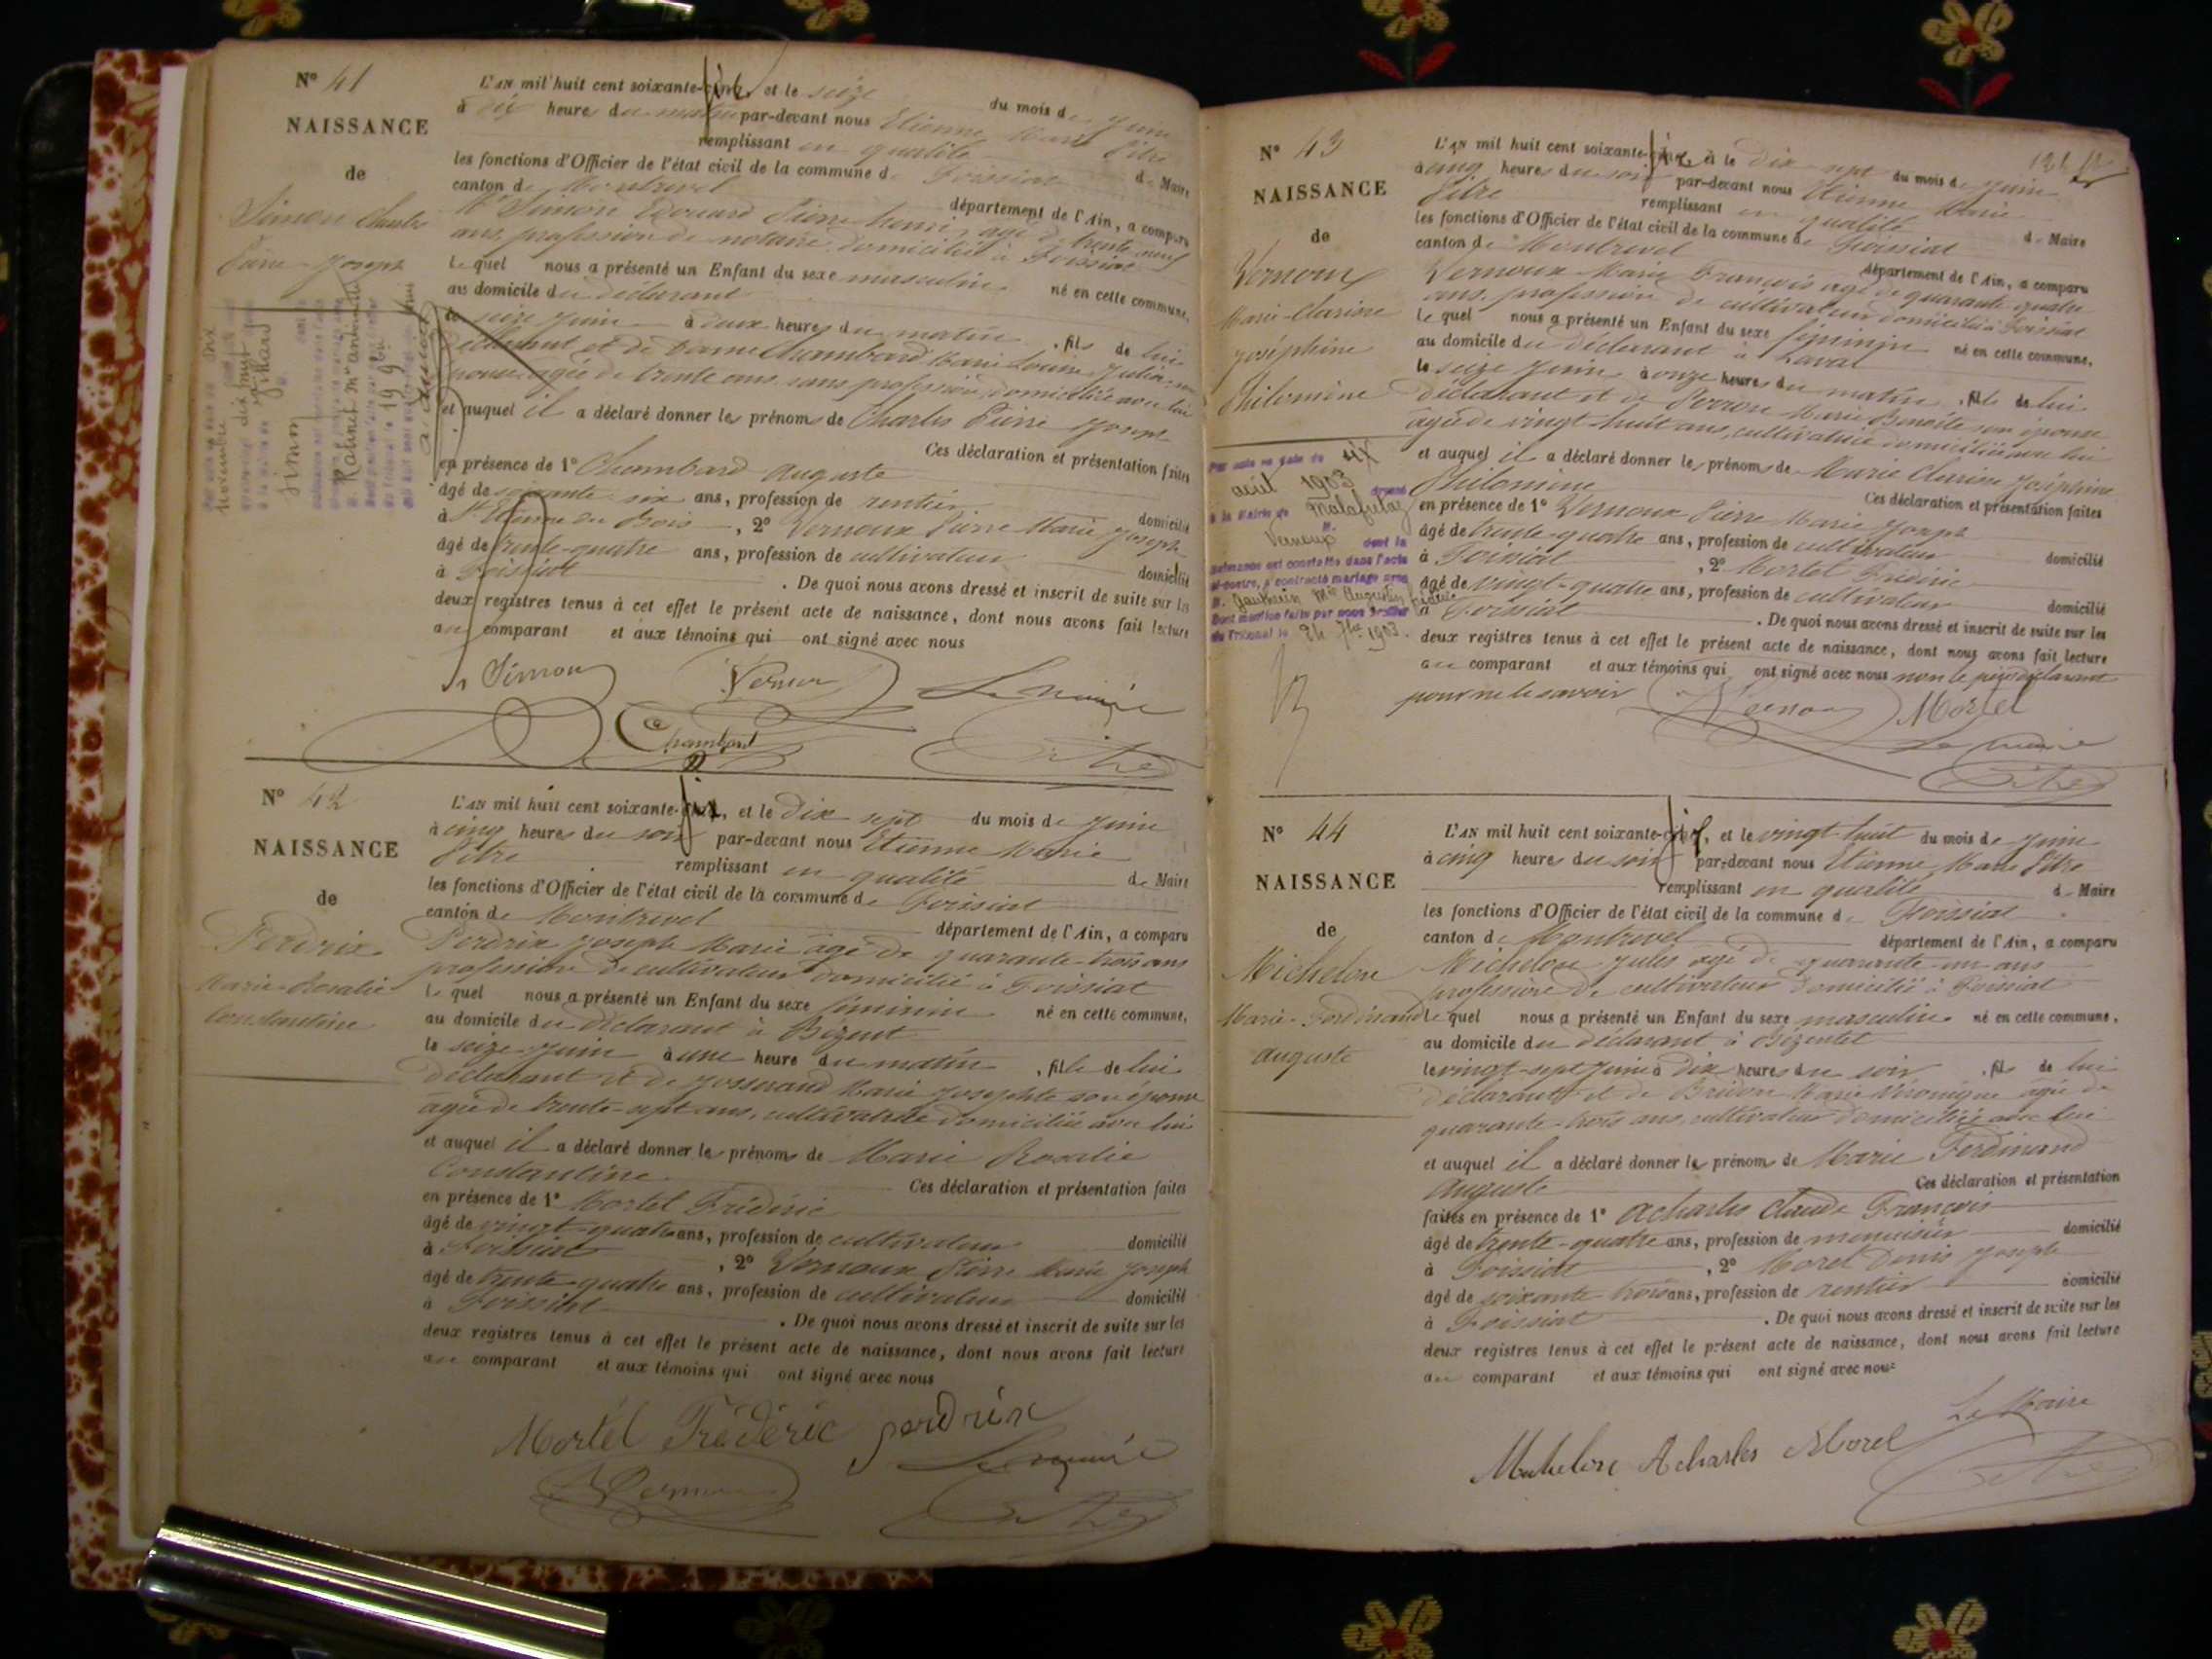 N° 41
NAISSANCE
de
Simon Charles
Pierre-Joseph
L'AN mil huit cent soixante-six et le seize du mois de Juin
à dix heures du matin par-devant nous Etienne Marie Pitre
remplissant en qualité de Maire
les fonctions d'Officier de l'état civil de la commune de Foissiat
canton de Montrevel département de l'Ain, a comparu
Mr Simon Edouard Pierre Henri, âgé de trente neuf
ans, profession de notaire domicilié à Foissiat
Lequel nous a présenté un Enfant du sexe masculin né en cette commune,
au domicile du déclarant
le seize Juin à deux heures du matin, fils de lui
déclarant et de dame Chambard Marie Louise Julie, son
épouse âgée de trente ans sans profession, domiciliée avec lui
et auquel il a déclaré donner les prénoms de Charles Pierre Joseph
Ces déclaration et présentation faites
en présence de 1° Chambard Auguste
âgé de soixante-six ans, profession de rentier domicilié
à St Etienne du Bois, 2° Vernoux Pierre Marie Joseph
âgé de trente-quatre ans, profession de cultivateur domicilié
à Foissiat. De quoi nous avons dressé et inscrit de suite sur les
deux registres tenus à cet effet le présent acte de naissance, dont nous avons fait lecture
au comparant et aux témoins qui ont signé avec nous
Simon Vernoux Le maire
Chambard Pitre
N° 42
NAISSANCE
de
Perdrix
Marie-Rosalie
Constantine
L'AN mil huit cent soixante-six, et le dix sept du mois de Juin
à cinq heures du soir par-devant nous Etienne Marie
Pitre remplissant en qualité de Maire
les fonctions d'Officier de l'état civil de la commune de Foissiat
canton de Montrevel département de l'Ain, a comparu
Perdrix Joseph Marie âgé de quarante-trois ans
profession de cultivateur domicilié à Foissiat
Lequel nous a présenté un Enfant du sexe féminin né en cette commune,
au domicile du déclarant à Bézent
le seize Juin à une heure du matin, fille de lui
déclarant et de Josserand Marie Josephte son épouse
âgée de trente-sept ans, cultivatrice domiciliée avec lui
et auquel il a déclaré donner les prénoms de Marie Rosalie
Constantine Ces déclaration et présentation faites
en présence de 1° Mortel Frédéric
âgé de vingt-quatre ans, profession de cultivateur domicilié
à Foissiat, 2° Vernoux Pierre Marie Joseph
âgé de trente-quatre ans, profession de cultivateur domicilié
à Foissiat. De quoi nous avons dressé et inscrit de suite sur les
deux registres tenus à cet effet le présent acte de naissance, dont nous avons fait lecture
au comparant et aux témoins qui ont signé avec nous
Mortel Frédéric perdrix
Vernoux Le maire
Pitre
N° 43
NAISSANCE
de
Vernoux
Marie-Clarisse
Joséphine
Philomène
Par acte en date du six
août 1903 dressé
à la Mairie de Malafretaz
M.
Vernoux dont la
naissance est constatée dans l'acte
ci-contre, a contracté mariage avec
M. Gauthier Mie Augustin
Dont mention faite par nous Greffier
du Tribunal le 24 7bre 1903.
L'AN mil huit cent soixante-six, et le dix sept du mois de Juin
à cinq heures du soir par-devant nous Etienne Marie
Pitre remplissant en qualité de Maire
les fonctions d'Officier de l'état civil de la commune de Foissiat
canton de Montrevel département de l'Ain, a comparu
Vernoux Marie François âgé de quarante quatre
ans, profession de cultivateur domicilié à Foissiat
Lequel nous a présenté un Enfant du sexe féminin né en cette commune,
au domicile du déclarant à Laval
le seize Juin à onze heures du matin, fille de lui
déclarant et de Perron Marie Benoîte son épouse
âgée de vingt-huit ans, cultivatrice domiciliée avec lui
et auquel il a déclaré donner les prénoms de Marie Clarisse Joséphine
Philomène Ces déclaration et présentation faites
en présence de 1° Vernoux Pierre Marie Joseph
âgé de trente-quatre ans, profession de cultivateur domicilié
à Foissiat, 2° Mortel Frédéric
âgé de vingt-quatre ans, profession de cultivateur domicilié
à Foissiat. De quoi nous avons dressé et inscrit de suite sur les
deux registres tenus à cet effet le présent acte de naissance, dont nous avons fait lecture
au comparant et aux témoins qui ont signé avec nous non le père déclarant
pour ne le savoir Vernoux Mortel
Le maire
Pitre
N° 44
NAISSANCE
de
Michelon
Marie-Ferdinand
Auguste
L'AN mil huit cent soixante-six, et le vingt-huit du mois de Juin
à cinq heures du soir par-devant nous Etienne Marie Pitre
remplissant en qualité de Maire
les fonctions d'Officier de l'état civil de la commune de Foissiat
canton de Montrevel département de l'Ain, a comparu
Michelon Jules âgé de quarante-un ans
profession de cultivateur domicilié à Foissiat
Lequel nous a présenté un Enfant du sexe masculin né en cette commune,
au domicile du déclarant à Bézentet
le vingt-sept Juin à dix heures du soir, fils de lui
déclarant et de Bridon Marie Véronique âgée de
quarante-trois ans, cultivateur domiciliée avec lui
et auquel il a déclaré donner les prénoms de Marie Ferdinand
Auguste Ces déclaration et présentation
faites en présence de 1° Acharles Claude François
âgé de trente-quatre ans, profession de menuisier domicilié
à Foissiat, 2° Morel Denis Joseph
âgé de soixante-trois ans, profession de rentier domicilié
à Foissiat. De quoi nous avons dressé et inscrit de suite sur les
deux registres tenus à cet effet le présent acte de naissance, dont nous avons fait lecture
au comparant et aux témoins qui ont signé avec nous
Le Maire
Michelon Acharles Morel Pitre